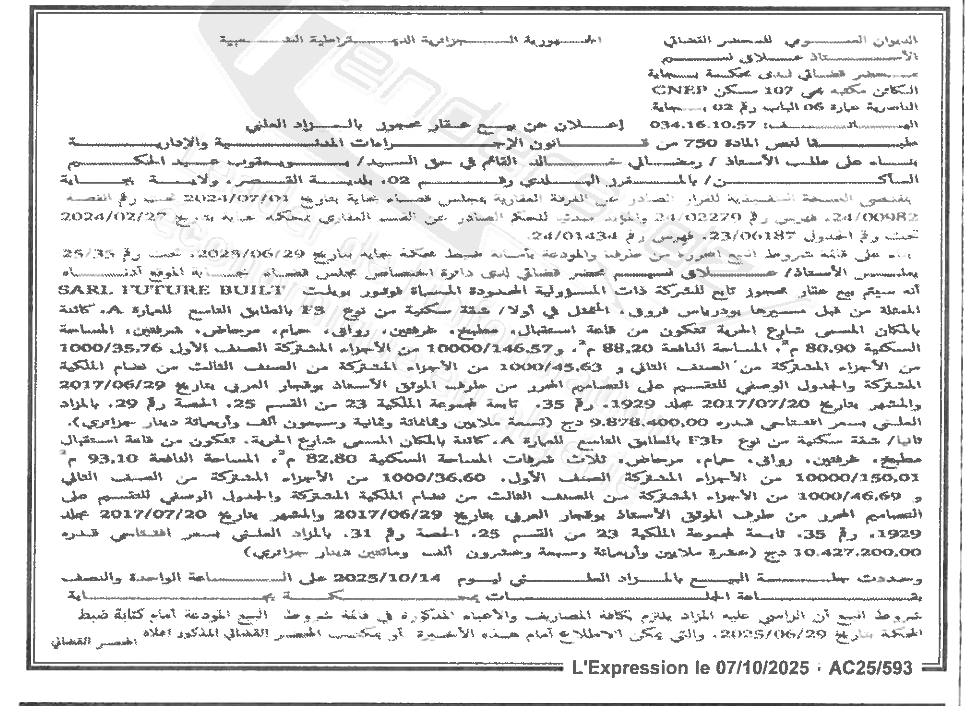 الديوان العمومي للمحضر القضائي
الجمهورية الجزائرية الديمقراطية الشعبية
الأستاذ علاق نسيم
محضر قضائي لدى محكمة بجاية
الكائن مكتبه بحي 107 مسكن CNEP
الناصرية عمارة 06 الباب رقم 02 بجاية
الهاتف: 034.16.10.57
إعلان عن بيع عقار محجوز بالمزاد العلني
طبقا لنص المادة 750 من قانون الإجراءات المدنية والإدارية
بناء على طلب الأستاذ / رمضاني خالد القائم في حق السيد/ بويعقوب عبد الحكيم
الساكن/ بالمستقرر البلدي رقم 02، بلدية القصر، ولاية بجاية
بمقتضى النسخة التنفيذية للقرار الصادر عن الغرفة العقارية بمجلس قضاء بجاية بتاريخ 2024/07/01 تحت رقم القضية
24/00982، فهرس رقم 24/02279 والمؤيد مبدئيا للحكم الصادر عن القسم العقاري بمحكمة بجاية بتاريخ 2024/02/27
تحت رقم الجدول 23/06187، فهرس رقم 24/01434.
بناء على قائمة شروط البيع المحررة من طرفنا والمودعة بأمانة ضبط محكمة بجاية بتاريخ 2025/06/29، تحت رقم 25/35
يعلن الأستاذ/ علاق نسيم محضر قضائي لدى دائرة اختصاص مجلس قضاء بجاية الموقع أدناه
أنه سيتم بيع عقار محجوز تابع للشركة ذات المسؤولية المحدودة المسماة فوتور بويلت SARL FUTURE BUILT
الممثلة من قبل مسيرها بودرباس فروق، المتمثل في أولا/ شقة سكنية من نوع F3 بالطابق التاسع للعمارة A، كائنة
بالمكان المسمى شارع الحرية تتكون من قاعة استقبال، مطبخ، غرفتين، رواق، حمام، مرحاض، شرفتين، المساحة
السكنية 80,90 م²، المساحة النافعة 88,20 م²، و10000/146.57 من الأجزاء المشتركة الصنف الأول 1000/35,76
من الأجزاء المشتركة من الصنف الثاني و 1000/45,63 من الأجزاء المشتركة من الصنف الثالث من نظام الملكية
المشتركة والجدول الوصفي للتقسيم على التصاميم المحرر من طرف الموثق الأستاذ بوقجار العربي بتاريخ 2017/06/29
والمشهر بتاريخ 2017/07/20 مجلد 1929، رقم 35، تابعة لمجموعة الملكية 23 من القسم 25، الحصة رقم 29، بالمزاد
العلني بسعر افتتاحي قدره 9.878.400,00 دج (تسعة ملايين وثمانمائة وثمانية وسبعون ألف وأربعمائة دينار جزائري).
ثانيا/ شقة سكنية من نوع F3b بالطابق التاسع للعمارة A، كائنة بالمكان المسمى شارع الحرية، تتكون من قاعة استقبال
مطبخ، غرفتين، رواق، حمام، مرحاض، ثلاث شرفات المساحة السكنية 82,80 م²، المساحة النافعة 93,10 م²
10000/150,01 من الأجزاء المشتركة الصنف الأول، 1000/36,60 من الأجزاء المشتركة من الصنف الثاني
و 1000/46,69 من الأجزاء المشتركة من الصنف الثالث من نظام الملكية المشتركة والجدول الوصفي للتقسيم على
التصاميم المحرر من طرف الموثق الأستاذ بوقجار العربي بتاريخ 2017/06/29 والمشهر بتاريخ 2017/07/20 مجلد
1929، رقم 35، تابعة لمجموعة الملكية 23 من القسم 25، الحصة رقم 31، بالمزاد العلني بسعر افتتاحي قدره
10.427.200,00 دج (عشرة ملايين وأربعمائة وسبعة وعشرون ألف ومائتين دينار جزائري)
وحددت جلسة البيع بالمزاد العلني ليوم 2025/10/14 على الساعة الواحدة والنصف
بقاعة الجلسات بمحكمة بجاية
شروط البيع أن الراسي عليه المزاد يلتزم بكافة المصاريف والأعباء المذكورة في قائمة شروط البيع المودعة أمام كتابة ضبط
المحكمة بتاريخ 2025/06/29، والتي يمكن الاطلاع أمام هذه الأخيرة أو بمكتب المحضر القضائي المذكور أعلاه
المحضر القضائي
L'Expression le 07/10/2025 · AC25/593